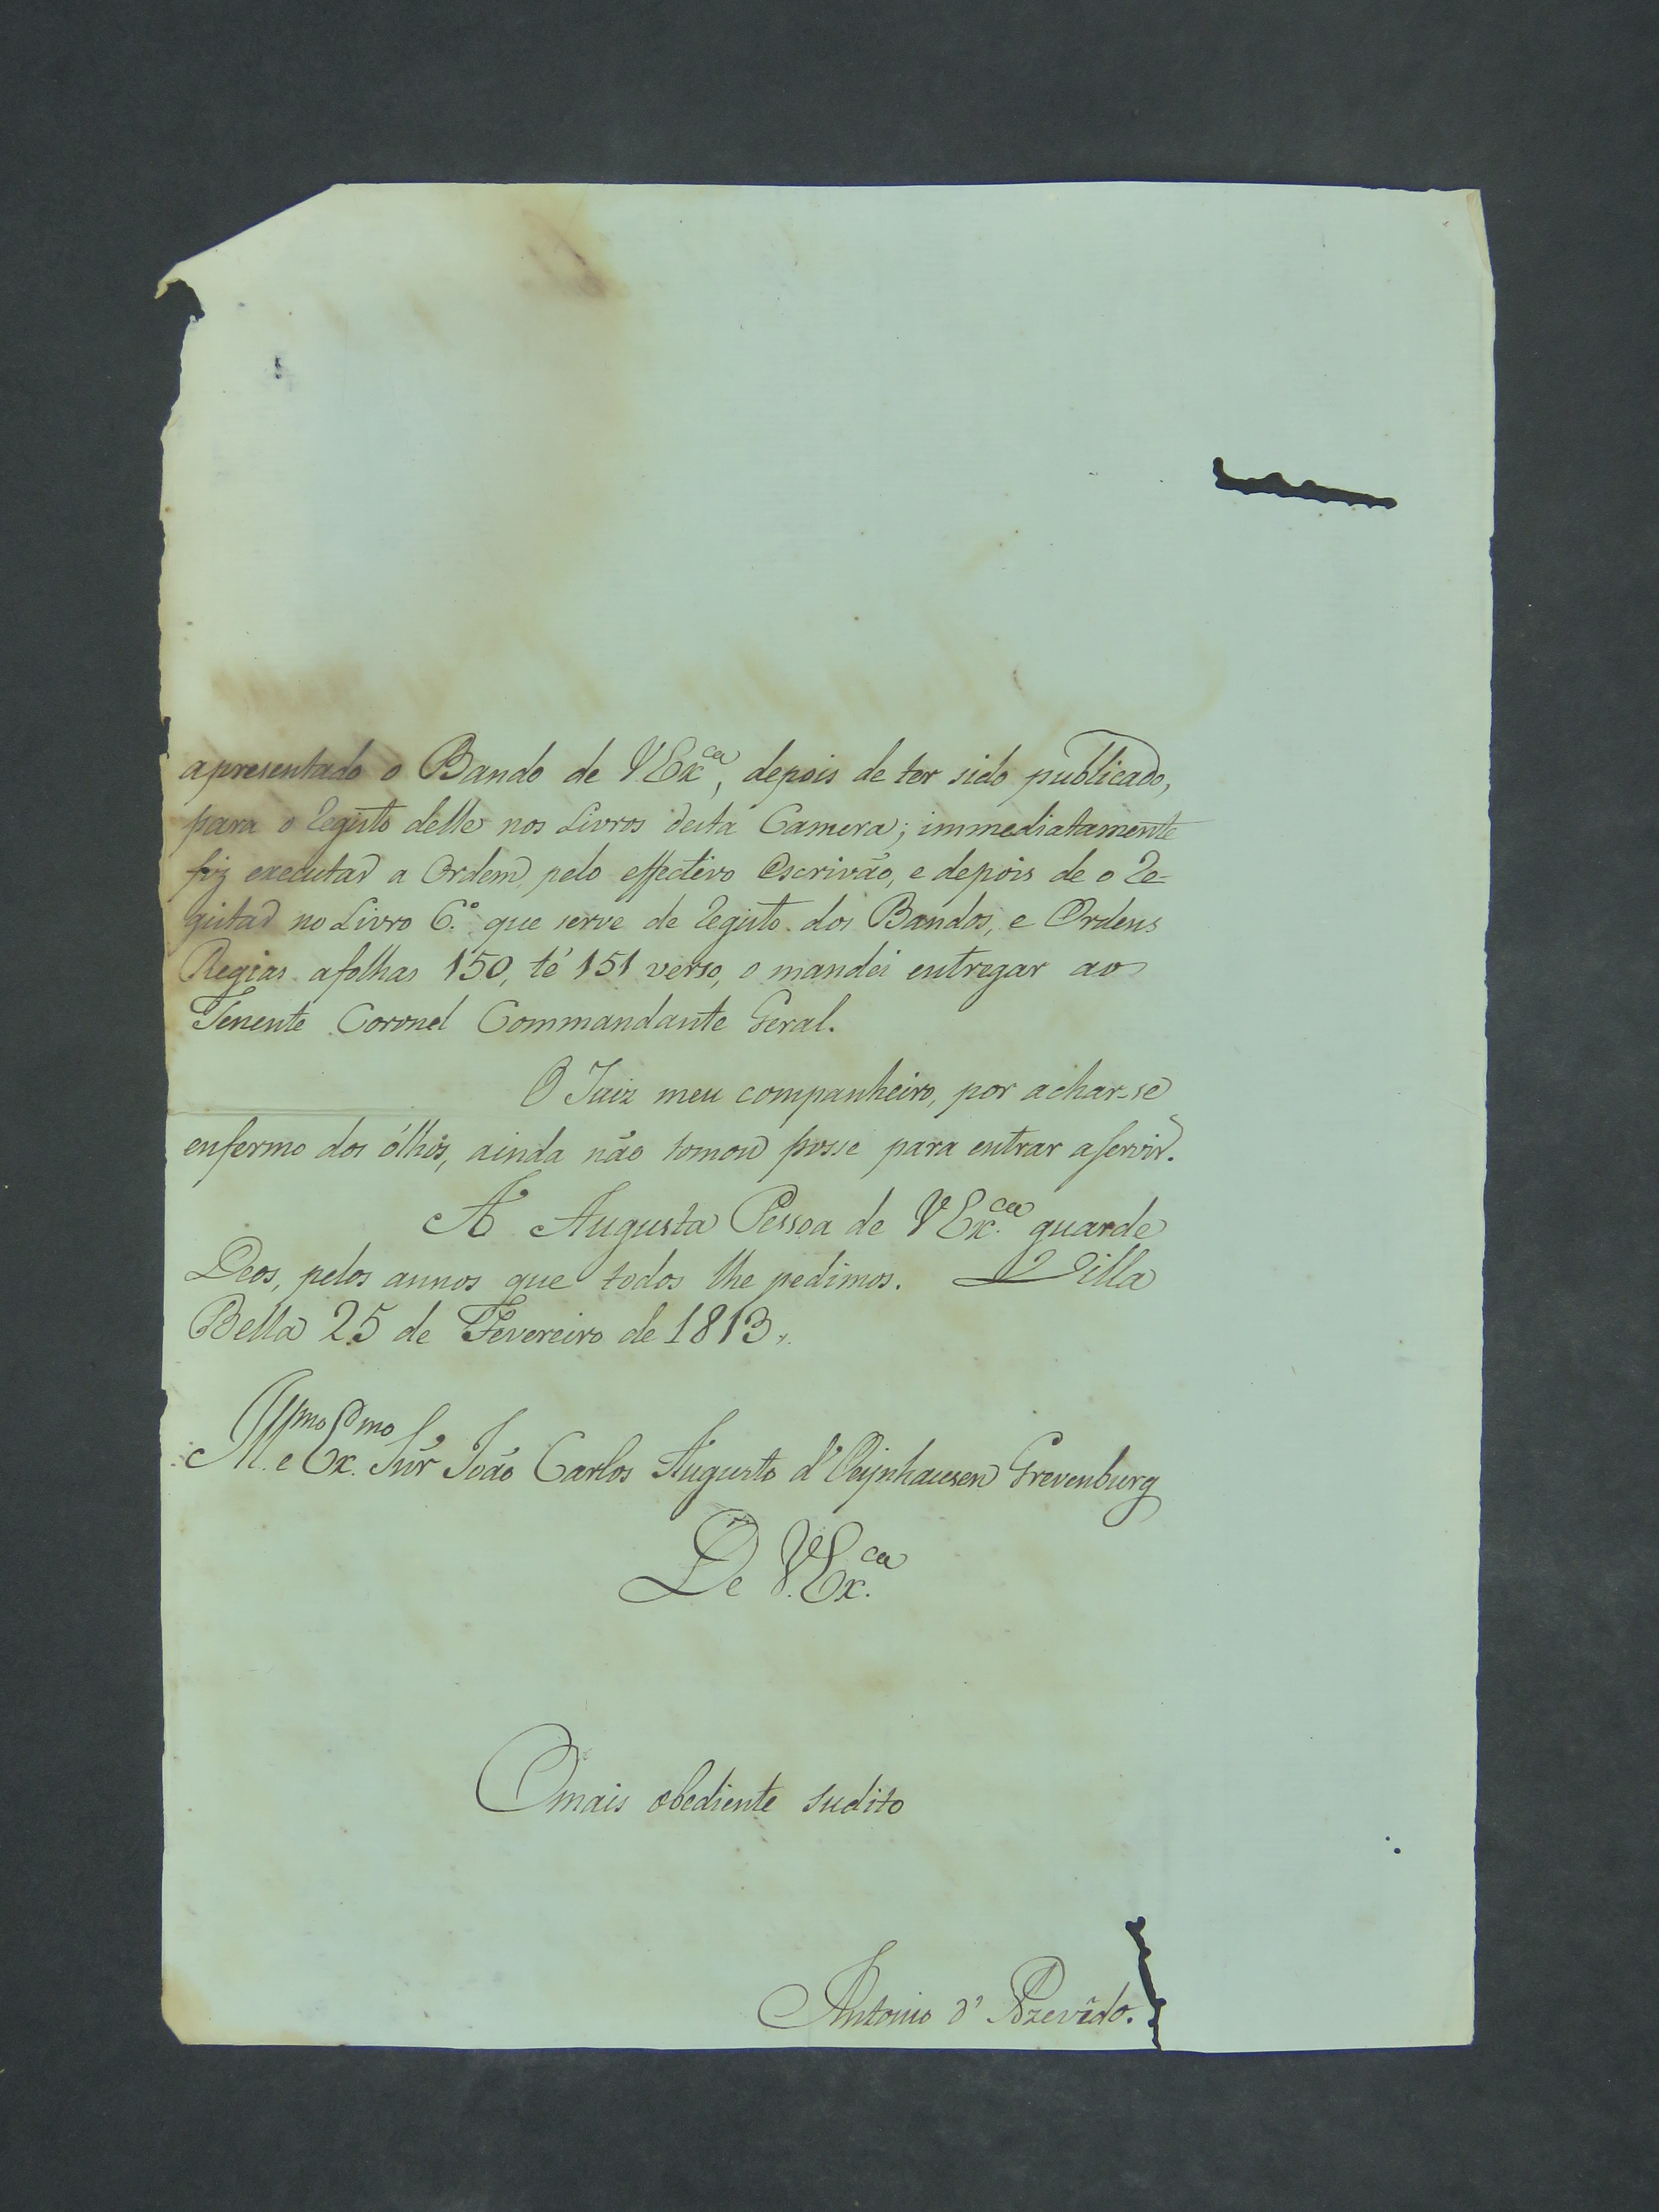 apresentado o Bando de V.Ex.ca, depois de ter sido publicado,
para o Registo delle nos Livros desta Camera; immediatamente
fiz executar a Ordem, pelo effectivo Escrivão, e depois de o Re-
gistar no Livro 6.º que serve de Registo dos Bandos, e Ordens
Regias afolhas 150, té 151 verso, o mandei entregar ao
Tenente Coronel Commandante Geral.
O Juiz meu companheiro, por achar-se
enfermo dos ólhos, ainda não tomou posse para entrar aservir.
A Augusta Pessoa de V.Ex.ca guarde
Deos, pelos annos que todos lhe pedimos. Villa
Bella 25 de Fevereiro de 1813.
Ill.mo e Ex.mo Snr João Carlos Augusto d'Oeynhausen Grevenburg
De V.Ex.ca
Omais obediente sudito
Antonio d'Azevedo.